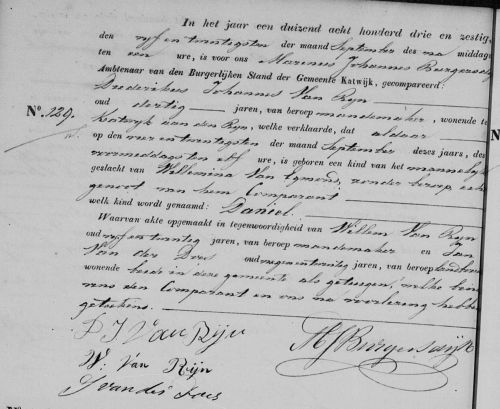 In het jaar een duizend acht honderd drie en zestig,
den vyf en twintigsten der maand September des na middags
ten een ure, is voor ons Marinus Johannes Burgersdyk
Ambtenaar van den Burgerlijken Stand der Gemeente Katwijk, gecompareerd:
Diederikus Johannes Van Ryn
oud dertig jaren, van beroep mandemaker, wonende te
No. 139. Katwyk aan den Ryn, welke verklaarde, dat aldaar
op den vier en twintigsten der maand September dezes jaars, des
voormiddags ten elf ure, is geboren een kind van het mannelyk
geslacht van Willemina Van Egmond, zonder beroep echt
genoot van hem Comparant
welk kind wordt genaamd: Daniel.
Waarvan akte opgemaakt in tegenwoordigheid van Willem Van Ryn
oud vyf en twintig jaren, van beroep mandemaker en Jan
Van der Does oud jaren, van beroep
wonende beide in deze gemeente als getuigen, welke bene
vens den Comparant en ons na voorlezing hebben
getekend.
D J Van Rijn
MJ Burgersdijk
W: Van Rijn
J van der Does